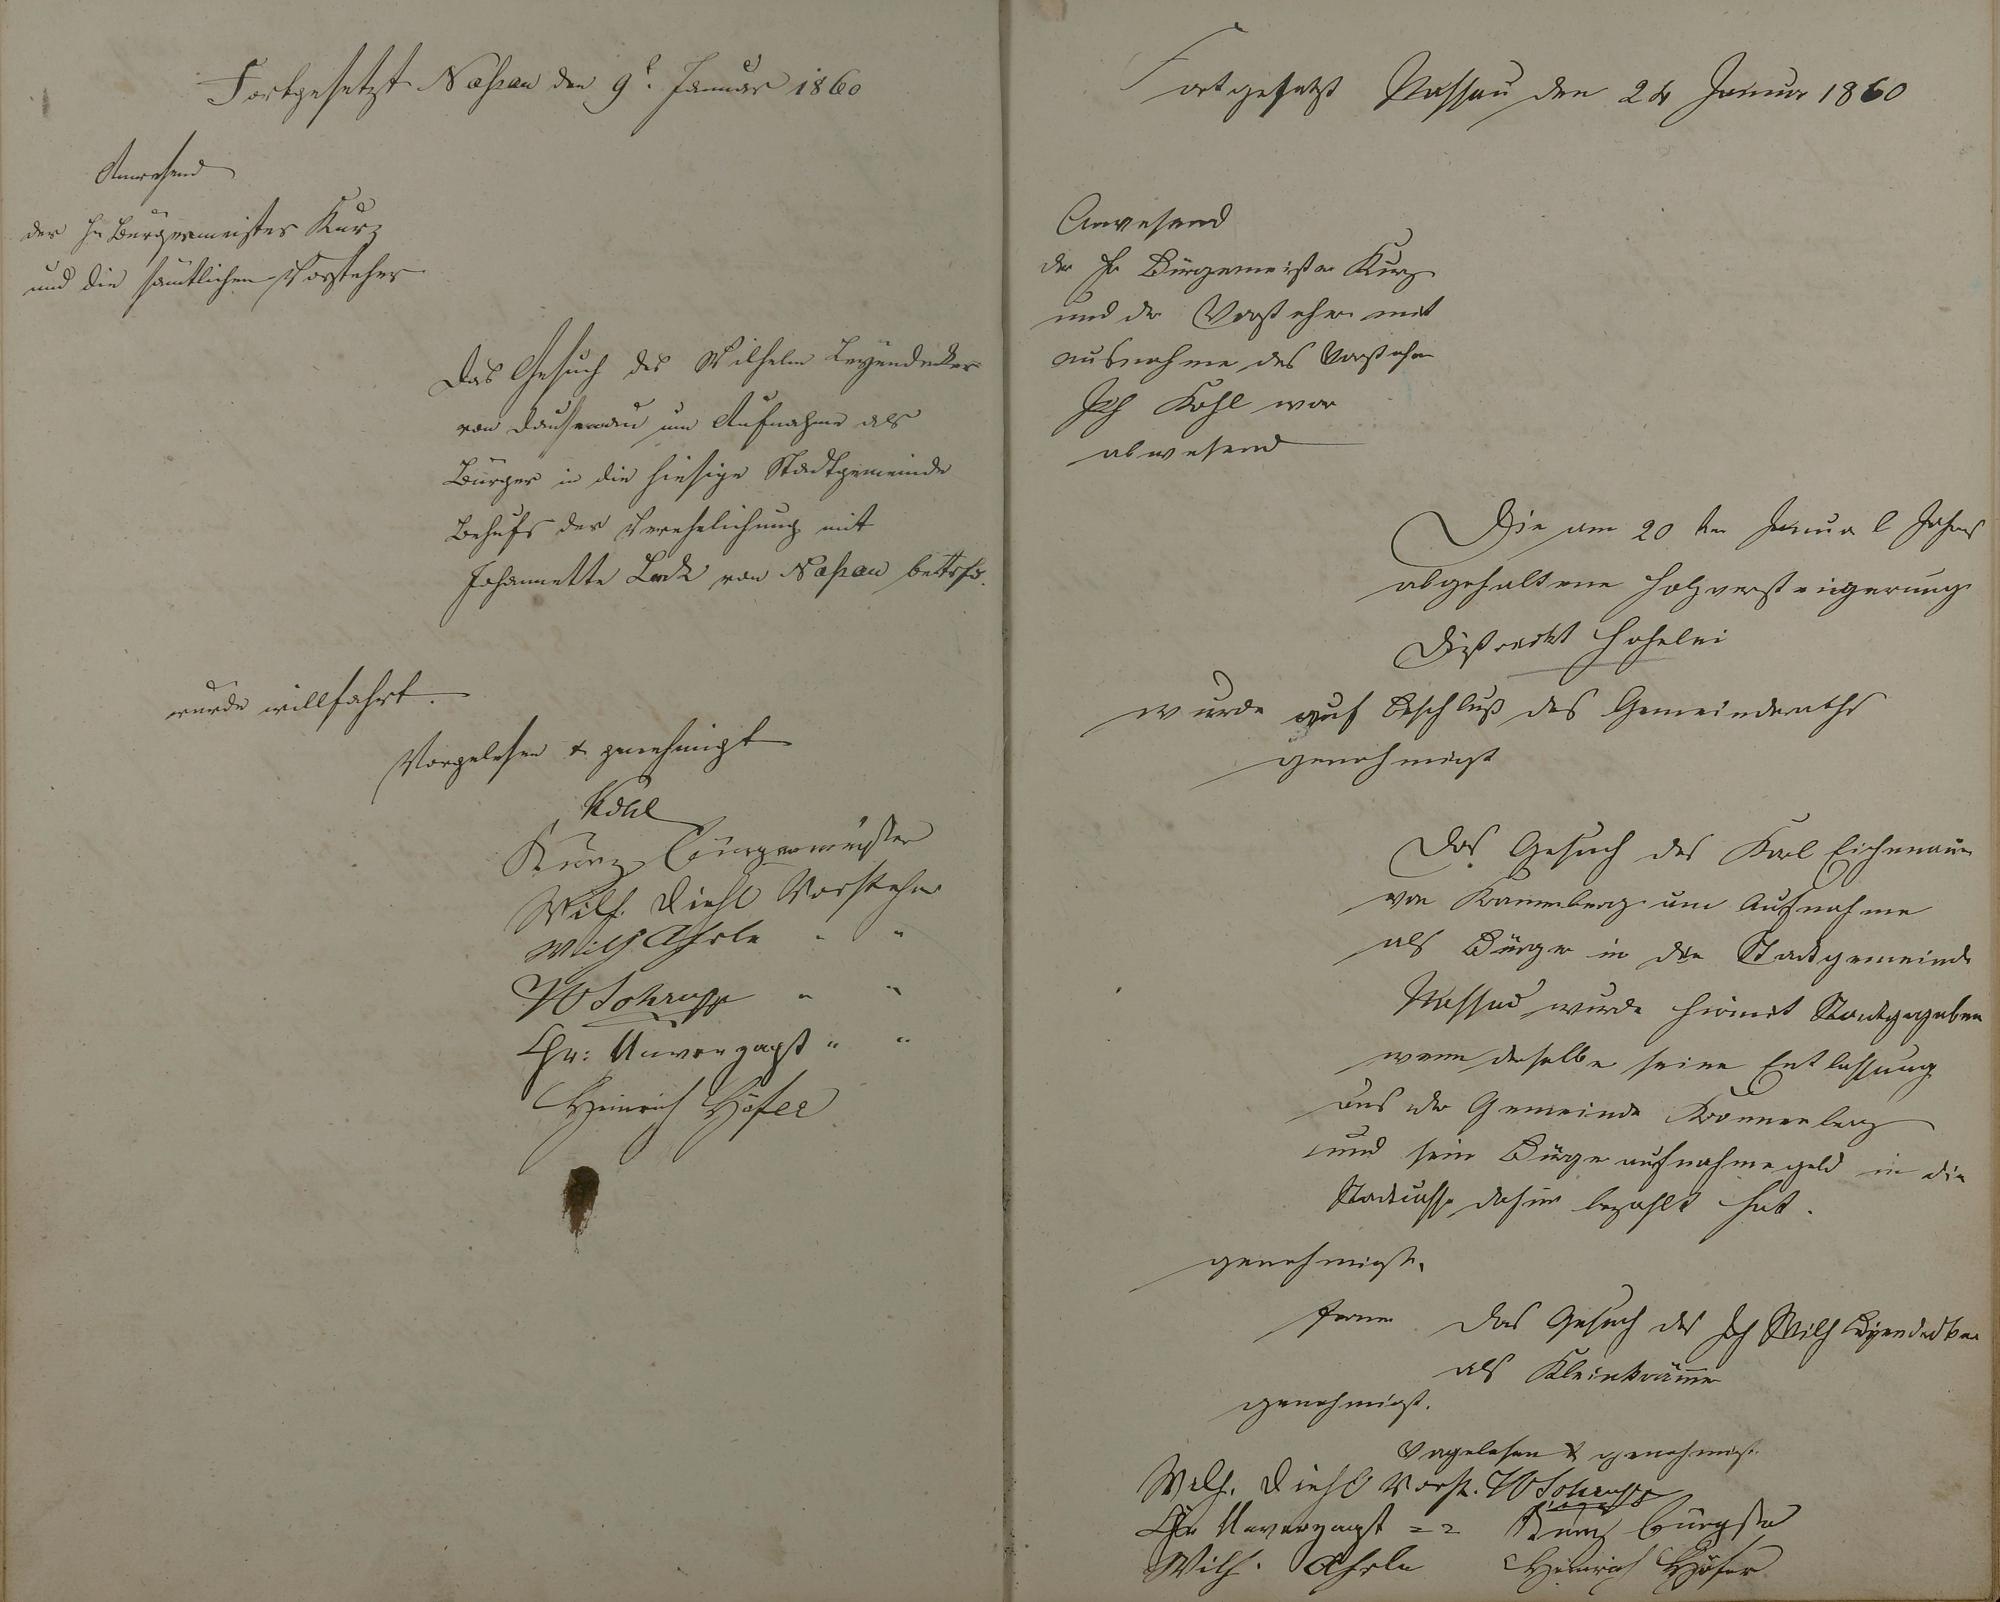 Fortgesetzt Naßau den 9t. Januar 1860
Anwesend
der Hr Bürgermeister Kurz
und die sämtlichen Vorsteher
Das Gesuch des Wilhelm Leyendecker
von Dausenau um Aufnahme als
Bürger in die hiesige Stadtgemeinde
Behufs der Verehelichung mit
Johannette von Naßau
wurde willfahrt.
Vorgelesen & genehmigt
Kohl
Kurz Bürgermeister
Wilh. Diehl Vorsteher
Wilh Ahrle " "
W " "
Chr: Unverzagt " "
Heinrich Höfer
Fortgesetzt Nassau den 24 Januar 1860
Anwesend
der Hr Bürgermeister Kurz
und der Vorsteher mit
ausnahme des Vorsteher
Joh Kohl war
abwesend
Die am 20 ten Januar l Jahrs
abgehaltene Holzversteigerung
District Hohelei
wurde auf Beschluß des Gemeinderaths
genehmigt
Das Gesuch des Karl Eichenauer
von um Aufnahme
als Bürger in die Stadtgemeinde
Nassau wurde hiermit Stattgegeben
wenn derselbe seine Entlassung
aus der Gemeinde
und sein Bürgeraufnahmegeld in die
Stadtcasse dafür bezahlt hat.
genehmigt.
ferner Das Gesuch des Joh Wilh Leyendecker
als Kleinkrämer
genehmigt.
Vorgelesen & genehmigt.
Wilh. Diehl Vorst. W
Chr Unverzagt = = Kurz Bürgstr
Wilh. Ahrle Heinrich Höfer